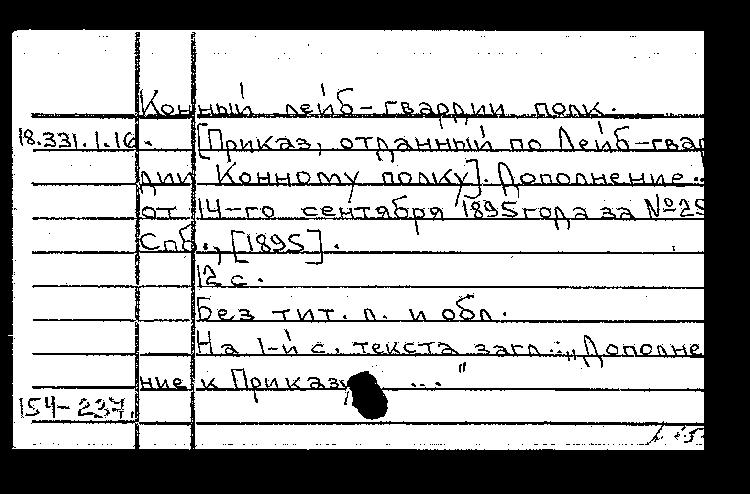 Конный лейб-гвардии полк.
18.331.1.16. [Приказ, отданный по Лейб-гвар
дии Конному полку]. Дополнение..
от 14-го сентября 1895 года за №25
Спб., [1895].
12 с.
Без тит. л. и обл.
На 1-й с. текста загл.: „Дополне
ние к Приказу ..."
154-237.